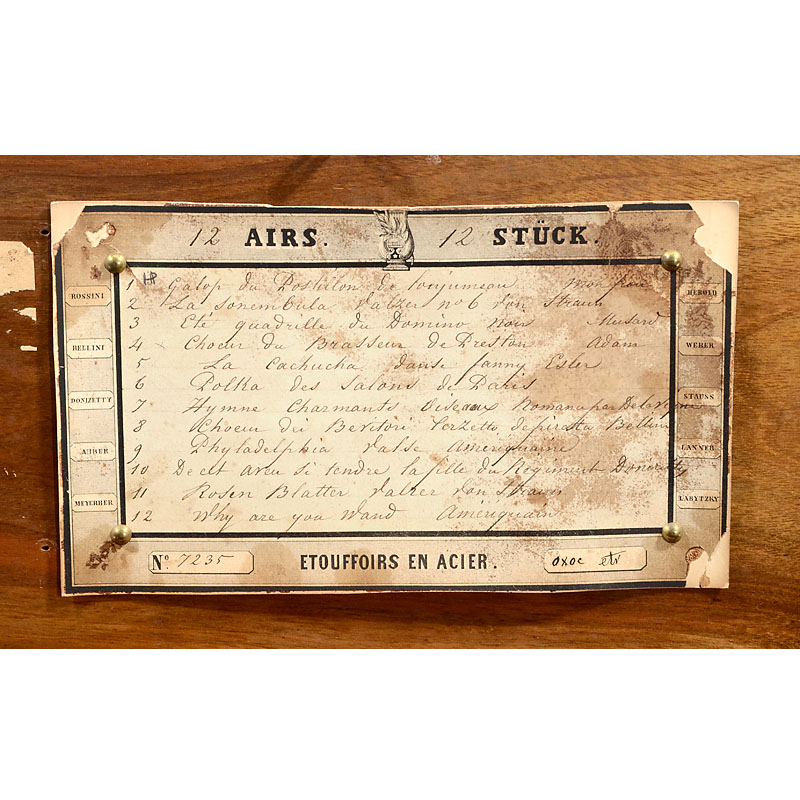 12 AIRS. 12 STÜCK.
ROSSINI
BELLINI
DONIZETTY
AUBER
MEYERBER
1 Galop du Postillon de
2 La Sonembula Valzer no 6 Von Straus
3 Eté quadrille du Domino Noir Musard
4 Choeur du Brasseur de Preston Adam
5 La Cachucha danse fanny Esler
6 Polka des Salons de Paris
7 Hymne Charmants Oiseaux
8 Choeur dei Bevitori Terzetto Bellini
9 Philadelphia Valse Ameriquaine
10 De cet aveu si tendre la fille du Regiment Donizetty
11 Rosen Blatter Valzer Von Straus
12 Why are you Wand Ameriquain
HEROLD
WEBER
STAUSS
LANNER
LABYTZKY
No. 7235
ETOUFFOIRS EN ACIER.
oxoc etv